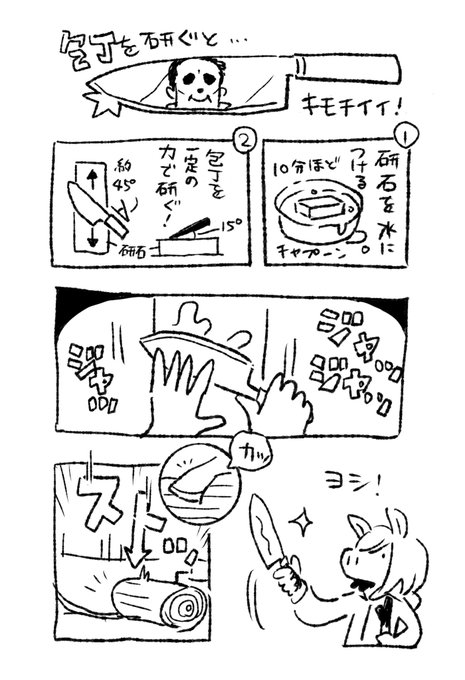 包丁を研ぐと…
キモチイイ！
①
研石を水に
つける
10分ほど
チャプーン
②
包丁を
一定の
力で研ぐ！
約
45°
研石
15°
ジャッ
ジャッ
ジャッ
カッ
スト
ヨシ！